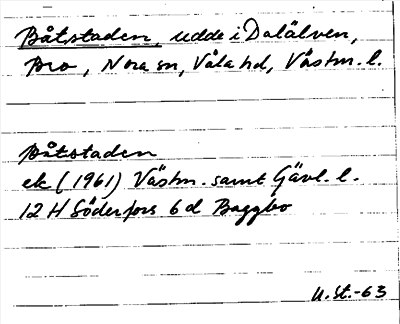 Båtstaden, udde i Dalälven,
Bro, Nora sn, Våla hd, Västm. l.
Båtstaden
ek (1961) Västm. samt Gävl. l.
12 H Söderfors 6 d Baggbo
U. St. -63